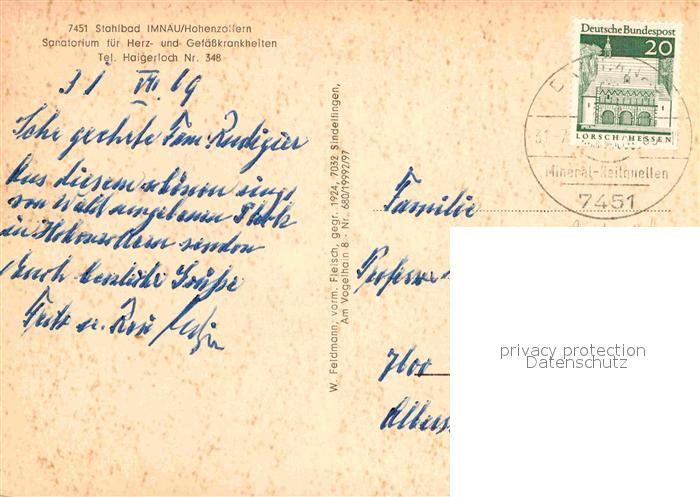 7451 Stahlbad IMNAU/Hohenzollern
Sanatorium für Herz- und Gefäßkrankheiten
Tel. Haigerloch Nr. 348
31 VII 69
Sehr geehrte Fam. Rudigier
Aus diesem schönen rings
von Wald umgebenen Platz
in Hohenzollern senden
Euch herzliche Grüße
Fritz u.
W. Feldmann, vorm. Fleisch, gegr. 1924, 7032 Sindelfingen,
Am Vogelhain 8 - Nr. 680/19992/97
Deutsche Bundespost
20
LORSCH/HESSEN
Mineral-Heilquellen
7451
Familie
Professor
7400
privacy protection
Datenschutz